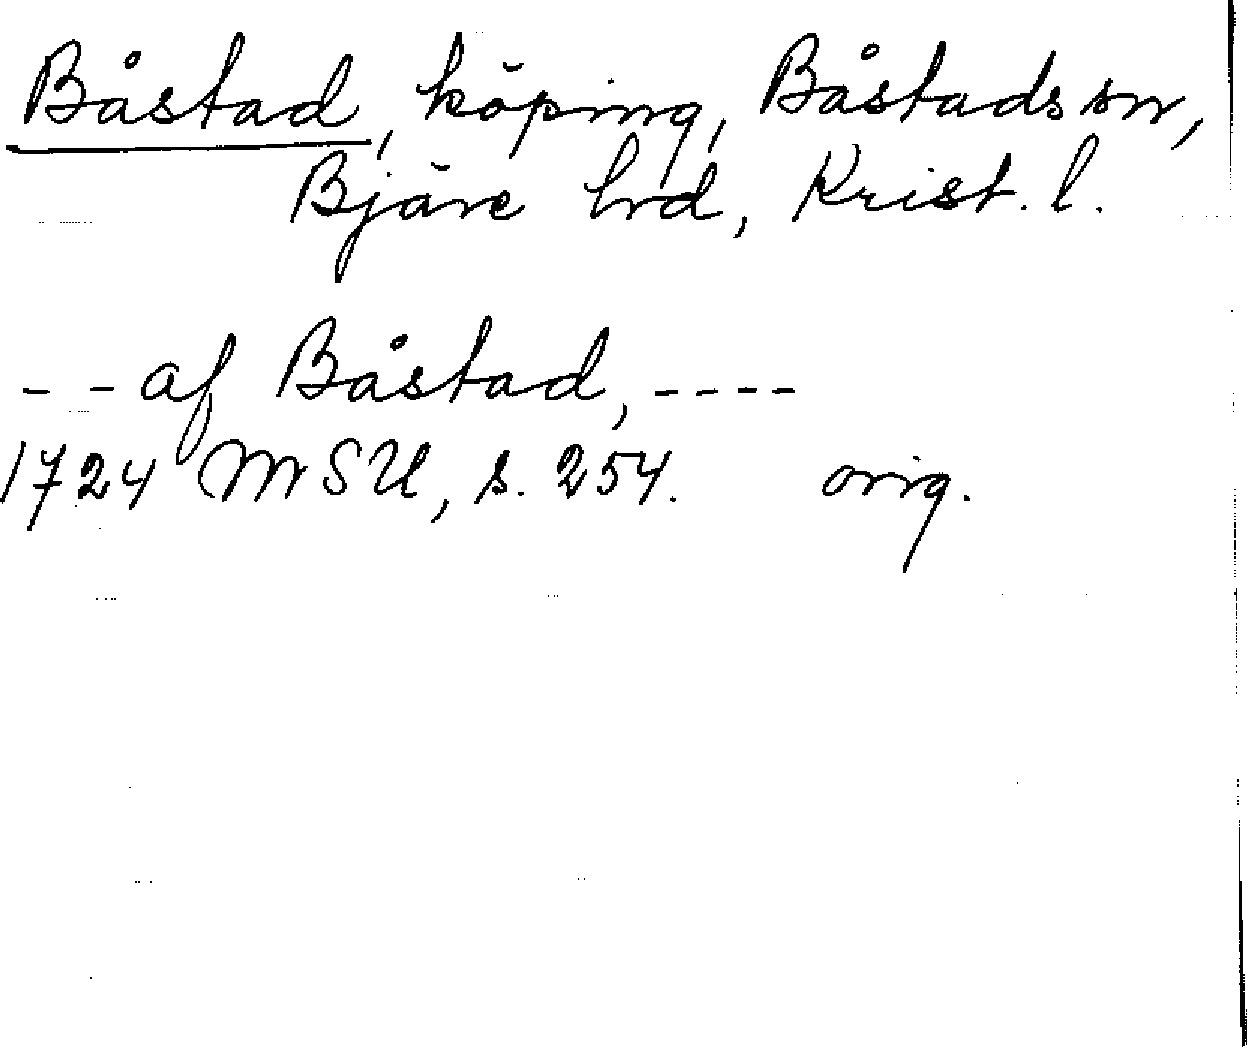 Båstad, köping, Båstads sn,
Bjäre hrd, Krist. l.
- - af Båstad, - - - -
1724 MSU, s. 254. orig.